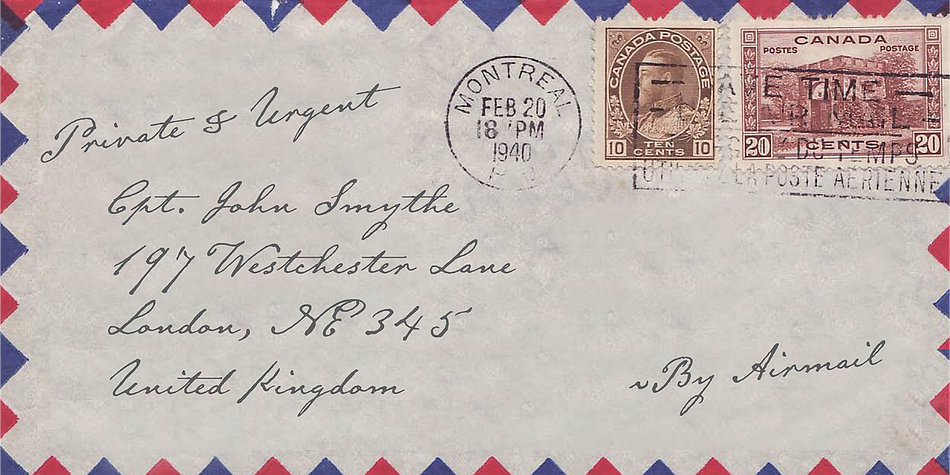 Private & Urgent
MONTREAL
FEB 20
18 PM
1940
CANADA POSTAGE
10 TEN CENTS 10
CANADA
POSTES POSTAGE
20 CENTS 20
TIME
DU TEMPS
LA POSTE AERIENNE
Cpt. John Smythe
197 Westchester Lane
London, NE 345
United Kingdom
By Airmail